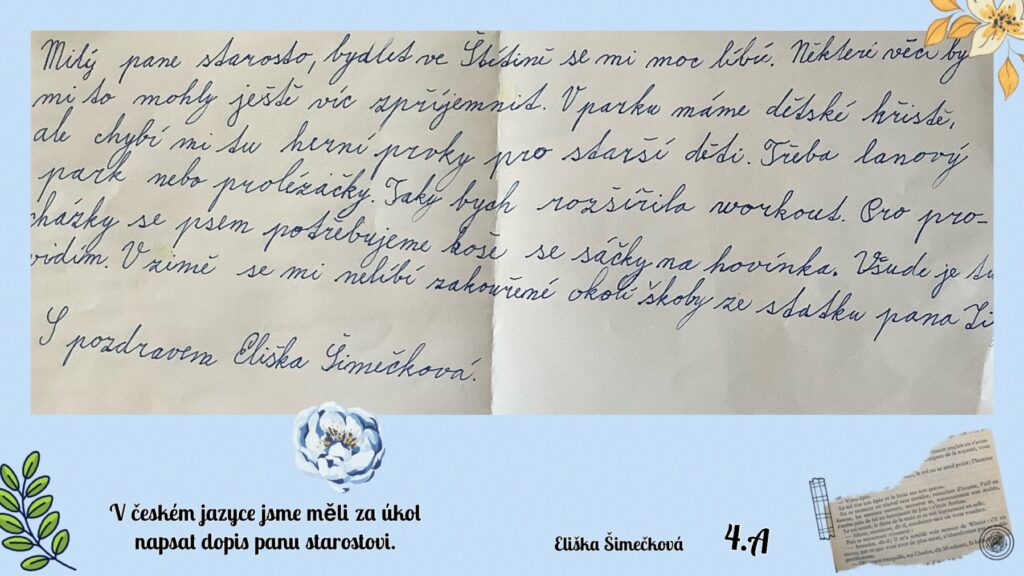 Milý pane starosto, bydlet ve Štítině se mi moc líbí. Některé věci by
mi to mohly ještě víc zpříjemnit. V parku máme dětské hřiště,
ale chybí mi tu herní prvky pro starší děti. Třeba lanový
park nebo prolézačky. Taky bych rozšířila workout. Pro pro-
cházky se psem potřebujeme koše se sáčky na hovínka. Všude je tu
vidím. V zimě se mi nelíbí zakouřené okolí školy ze statku pana
S pozdravem Eliška Šimečková.
V českém jazyce jsme měli za úkol
napsat dopis panu starostovi.
Eliška Šimečková 4.A